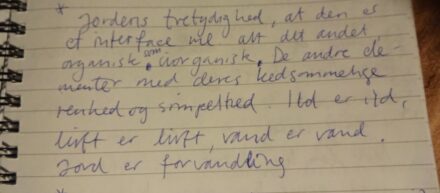 * Jordens tretydighed, at den er
et interface ml alt det andet,
organisk som uorganisk. De andre ele-
menter med deres kedsommelige
renhed og simpelhed. Ild er ild,
luft er luft, vand er vand.
Jord er forvandling